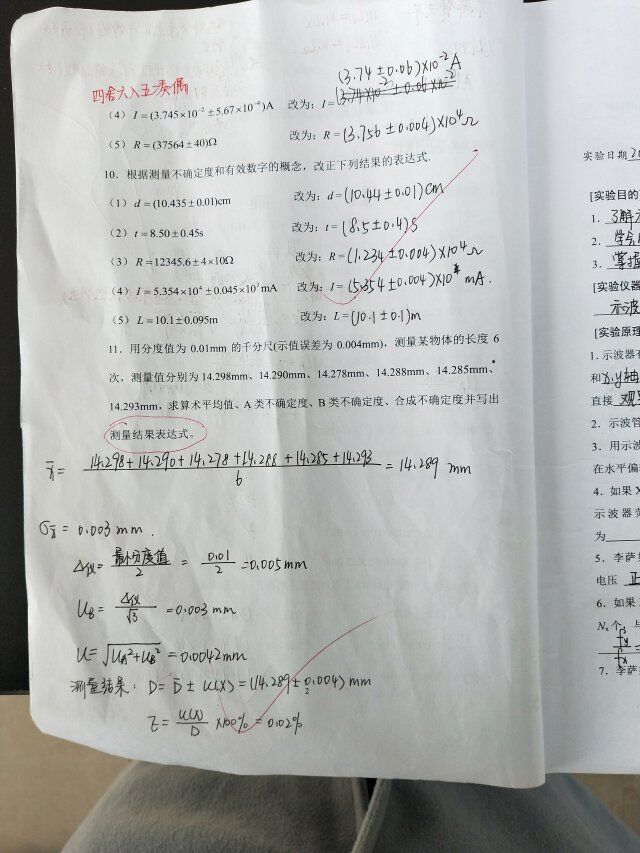 (3.74±0.06)×10⁻²A
四舍六入五凑偶
(4) I=(3.745×10⁻²±5.67×10⁻⁴)A 改为：I=
(5) R=(37564±40)Ω 改为：R=(3.756±0.004)×10⁴Ω
10．根据测量不确定度和有效数字的概念，改正下列结果的表达式.
(1) d=(10.435±0.01)cm 改为：d=(10.44±0.01)cm
(2) t=8.50±0.45s 改为：t=(8.5±0.4)s
(3) R=12345.6±4×10Ω 改为：R=(1.234±0.004)×10⁴Ω
(4) I=5.354×10⁴±0.045×10³mA 改为：I=(5.354±0.004)×10⁴mA.
(5) L=10.1±0.095m 改为：L=(10.1±0.1)m
11．用分度值为 0.01mm 的千分尺(示值误差为 0.004mm)，测量某物体的长度 6
次，测量值分别为 14.298mm、14.290mm、14.278mm、14.288mm、14.285mm、
14.293mm，求算术平均值、A 类不确定度、B 类不确定度、合成不确定度并写出
测量结果表达式。
x̄= (14.298+14.290+14.278+14.288+14.285+14.293)/6 =14.289 mm
σx̄=0.003mm.
Δ仪=最小分度值/2 = 0.01/2 =0.005mm
U_B=Δ仪/√3 =0.003mm
U=√(U_A²+U_B²) =0.0042mm
测量结果：D=D̄±U(X)=(14.289±0.004)mm
2
E=U(X)/D̄ ×100%=0.02%
实验日期 20
[实验目的
1．了解
2．学会
3．掌握
[实验仪器
示波
[实验原理
1.示波器
和x.y轴
直接 观
2．示波管
3．用示波
在水平偏
4．如果 X
示波器荧
为
5．李萨
电压 正
6．如果
Nₓ个，与
fy
fx
7．李萨